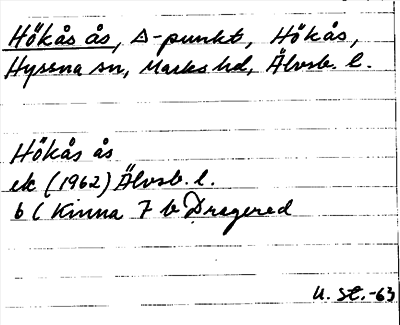 Hökås ås, △-punkt, Hökås,
Hyssna sn, Marks hd, Älvsb. l.
Hökås ås
ek (1962) Älvsb. l.
6 C Kinna 7 b Dragered
U. St. -63